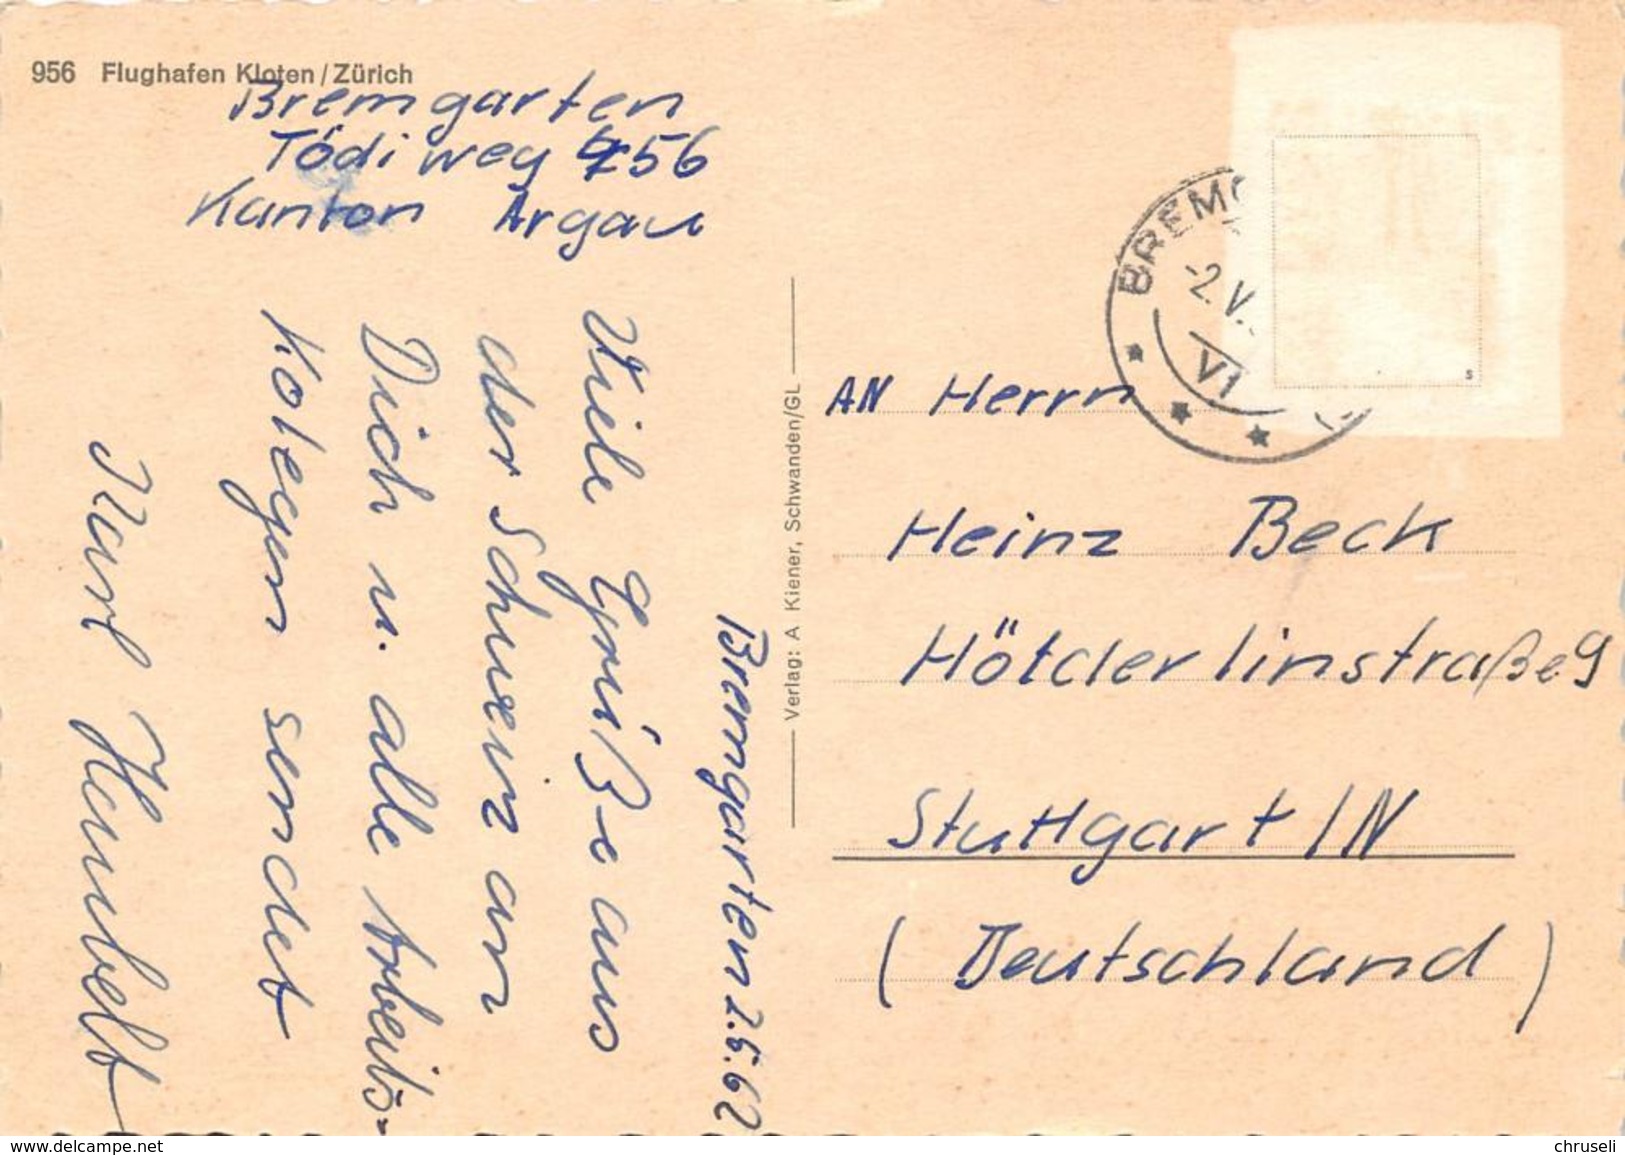 956 Flughafen Kloten / Zürich
Bremgarten
Tödiweg 456
Kanton Argau
Bremgarten 2.5.62
Viele Grüße aus
der Schweiz an
Dich u. alle Arbeits=
Kolegen sendet
Karl
Verlag: A Kiener, Schwanden/GL
BREMG
-2.V.
VI
S
AN Herrn
Heinz Beck
Hölderlinstraße 9
Stuttgart /N
(Deutschland)
https://www.delcampe.net
chruseli